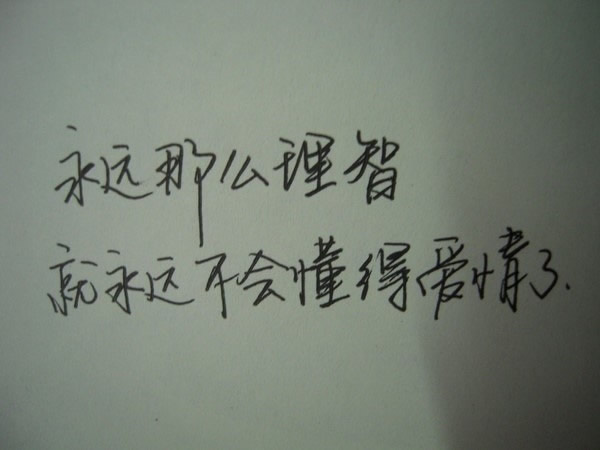 永远那么理智
就永远不会懂得爱情了.